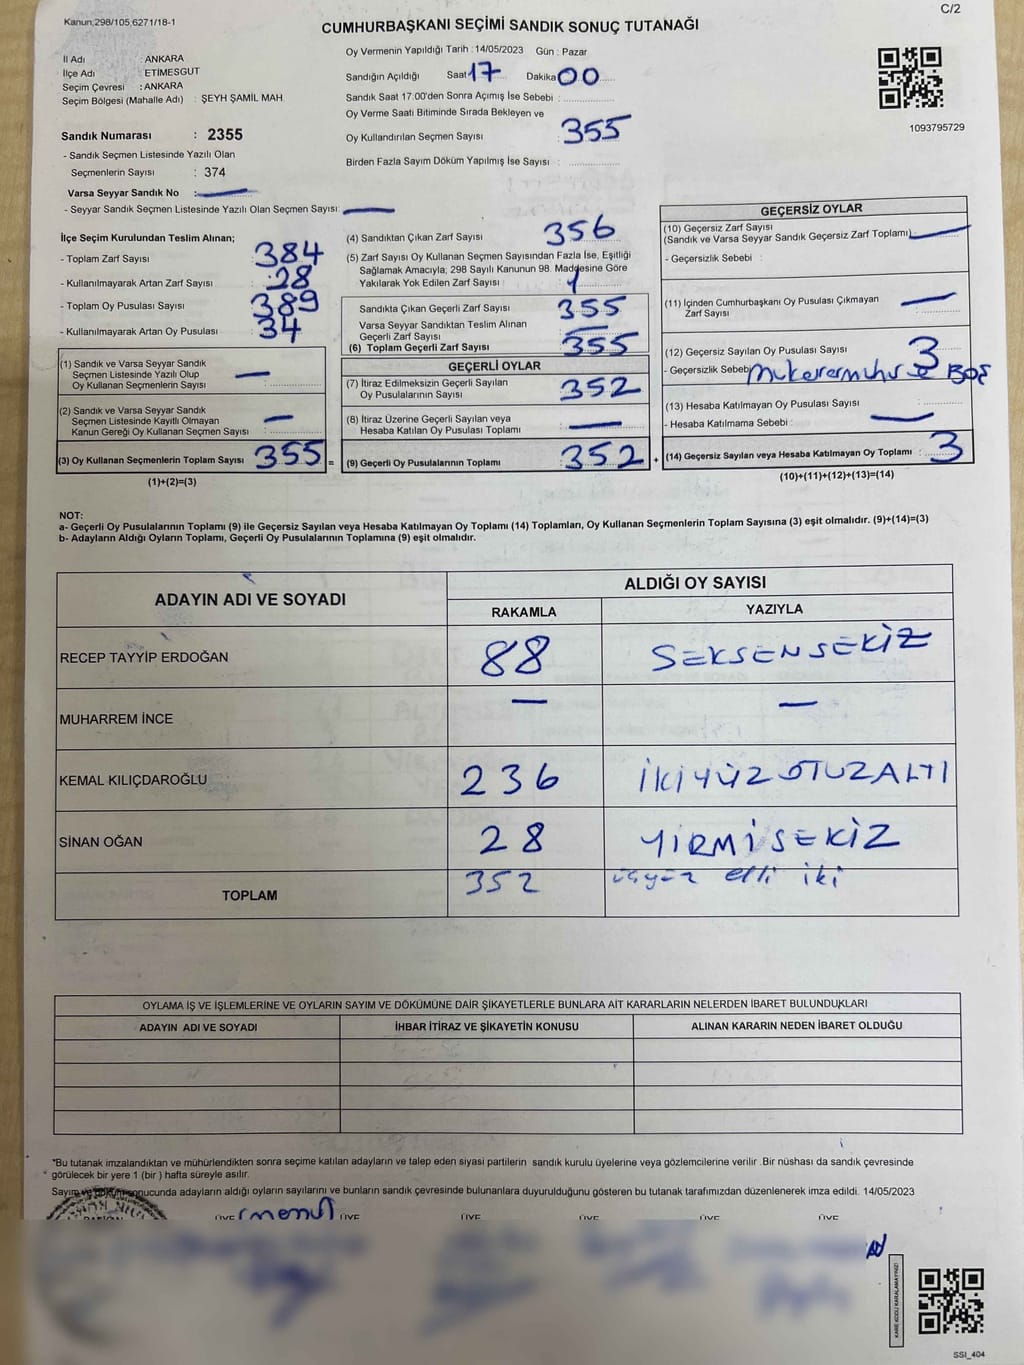 Kanun:298/105,6271/18-1
C/2
CUMHURBAŞKANI SEÇİMİ SANDIK SONUÇ TUTANAĞI
İl Adı : ANKARA
İlçe Adı : ETİMESGUT
Seçim Çevresi : ANKARA
Seçim Bölgesi (Mahalle Adı) : ŞEYH ŞAMİL MAH
Sandık Numarası : 2355
- Sandık Seçmen Listesinde Yazılı Olan
Seçmenlerin Sayısı : 374
Varsa Seyyar Sandık No : —
- Seyyar Sandık Seçmen Listesinde Yazılı Olan Seçmen Sayısı: —
Oy Vermenin Yapıldığı Tarih : 14/05/2023 Gün : Pazar
Sandığın Açıldığı Saat 17 Dakika 00
Sandık Saat 17.00'den Sonra Açımış İse Sebebi :
Oy Verme Saati Bitiminde Sırada Bekleyen ve
Oy Kullandırılan Seçmen Sayısı : 355
Birden Fazla Sayım Döküm Yapılmış İse Sayısı :
1093795729
İlçe Seçim Kurulundan Teslim Alınan;
- Toplam Zarf Sayısı : 384
- Kullanılmayarak Artan Zarf Sayısı : 28
- Toplam Oy Pusulası Sayısı : 389
- Kullanılmayarak Artan Oy Pusulası : 34
(1) Sandık ve Varsa Seyyar Sandık
Seçmen Listesinde Yazılı Olup
Oy Kullanan Seçmenlerin Sayısı : —
(2) Sandık ve Varsa Seyyar Sandık
Seçmen Listesinde Kayıtlı Olmayan
Kanun Gereği Oy Kullanan Seçmen Sayısı : —
(3) Oy Kullanan Seçmenlerin Toplam Sayısı : 355 =
(1)+(2)=(3)
(4) Sandıktan Çıkan Zarf Sayısı : 356
(5) Zarf Sayısı Oy Kullanan Seçmen Sayısından Fazla İse, Eşitliği
Sağlamak Amacıyla; 298 Sayılı Kanunun 98. Maddesine Göre
Yakılarak Yok Edilen Zarf Sayısı : 1
Sandıkta Çıkan Geçerli Zarf Sayısı : 355
Varsa Seyyar Sandıktan Teslim Alınan
Geçerli Zarf Sayısı
(6) Toplam Geçerli Zarf Sayısı : 355
GEÇERLİ OYLAR
(7) İtiraz Edilmeksizin Geçerli Sayılan
Oy Pusulalarının Sayısı : 352
(8) İtiraz Üzerine Geçerli Sayılan veya
Hesaba Katılan Oy Pusulası Toplamı : —
(9) Geçerli Oy Pusulalarının Toplamı : 352 +
GEÇERSİZ OYLAR
(10) Geçersiz Zarf Sayısı
(Sandık ve Varsa Seyyar Sandık Geçersiz Zarf Toplamı) : —
- Geçersizlik Sebebi :
(11) İçinden Cumhurbaşkanı Oy Pusulası Çıkmayan
Zarf Sayısı : —
(12) Geçersiz Sayılan Oy Pusulası Sayısı : 3
- Geçersizlik Sebebi BOŞ
(13) Hesaba Katılmayan Oy Pusulası Sayısı :
- Hesaba Katılmama Sebebi : —
(14) Geçersiz Sayılan veya Hesaba Katılmayan Oy Toplamı : 3
(10)+(11)+(12)+(13)=(14)
NOT:
a- Geçerli Oy Pusulalarının Toplamı (9) ile Geçersiz Sayılan veya Hesaba Katılmayan Oy Toplamı (14) Toplamları, Oy Kullanan Seçmenlerin Toplam Sayısına (3) eşit olmalıdır. (9)+(14)=(3)
b- Adayların Aldığı Oyların Toplamı, Geçerli Oy Pusulalarının Toplamına (9) eşit olmalıdır.
ADAYIN ADI VE SOYADI
ALDIĞI OY SAYISI
RAKAMLA YAZIYLA
RECEP TAYYİP ERDOĞAN 88 SEKSENSEKİZ
MUHARREM İNCE — —
KEMAL KILIÇDAROĞLU 236 İKİYÜZOTUZALTI
SİNAN OĞAN 28 YİRMİSEKİZ
TOPLAM 352 üçyüz elli iki
OYLAMA İŞ VE İŞLEMLERİNE VE OYLARIN SAYIM VE DÖKÜMÜNE DAİR ŞİKAYETLERLE BUNLARA AİT KARARLARIN NELERDEN İBARET BULUNDUKLARI
ADAYIN ADI VE SOYADI İHBAR İTİRAZ VE ŞİKAYETİN KONUSU ALINAN KARARIN NEDEN İBARET OLDUĞU
*Bu tutanak imzalandıktan ve mühürlendikten sonra seçime katılan adayların ve talep eden siyasi partilerin sandık kurulu üyelerine veya gözlemcilerine verilir .Bir nüshası da sandık çevresinde
görülecek bir yere 1 (bir ) hafta süreyle asılır.
Sayım ve döküm sonucunda adayların aldığı oyların sayılarını ve bunların sandık çevresinde bulunanlara duyurulduğunu gösteren bu tutanak tarafımızdan düzenlenerek imza edildi. 14/05/2023
ÜYE ÜYE ÜYE ÜYE ÜYE ÜYE
KARE KODU KARALAMAYINIZ!
SSI_404